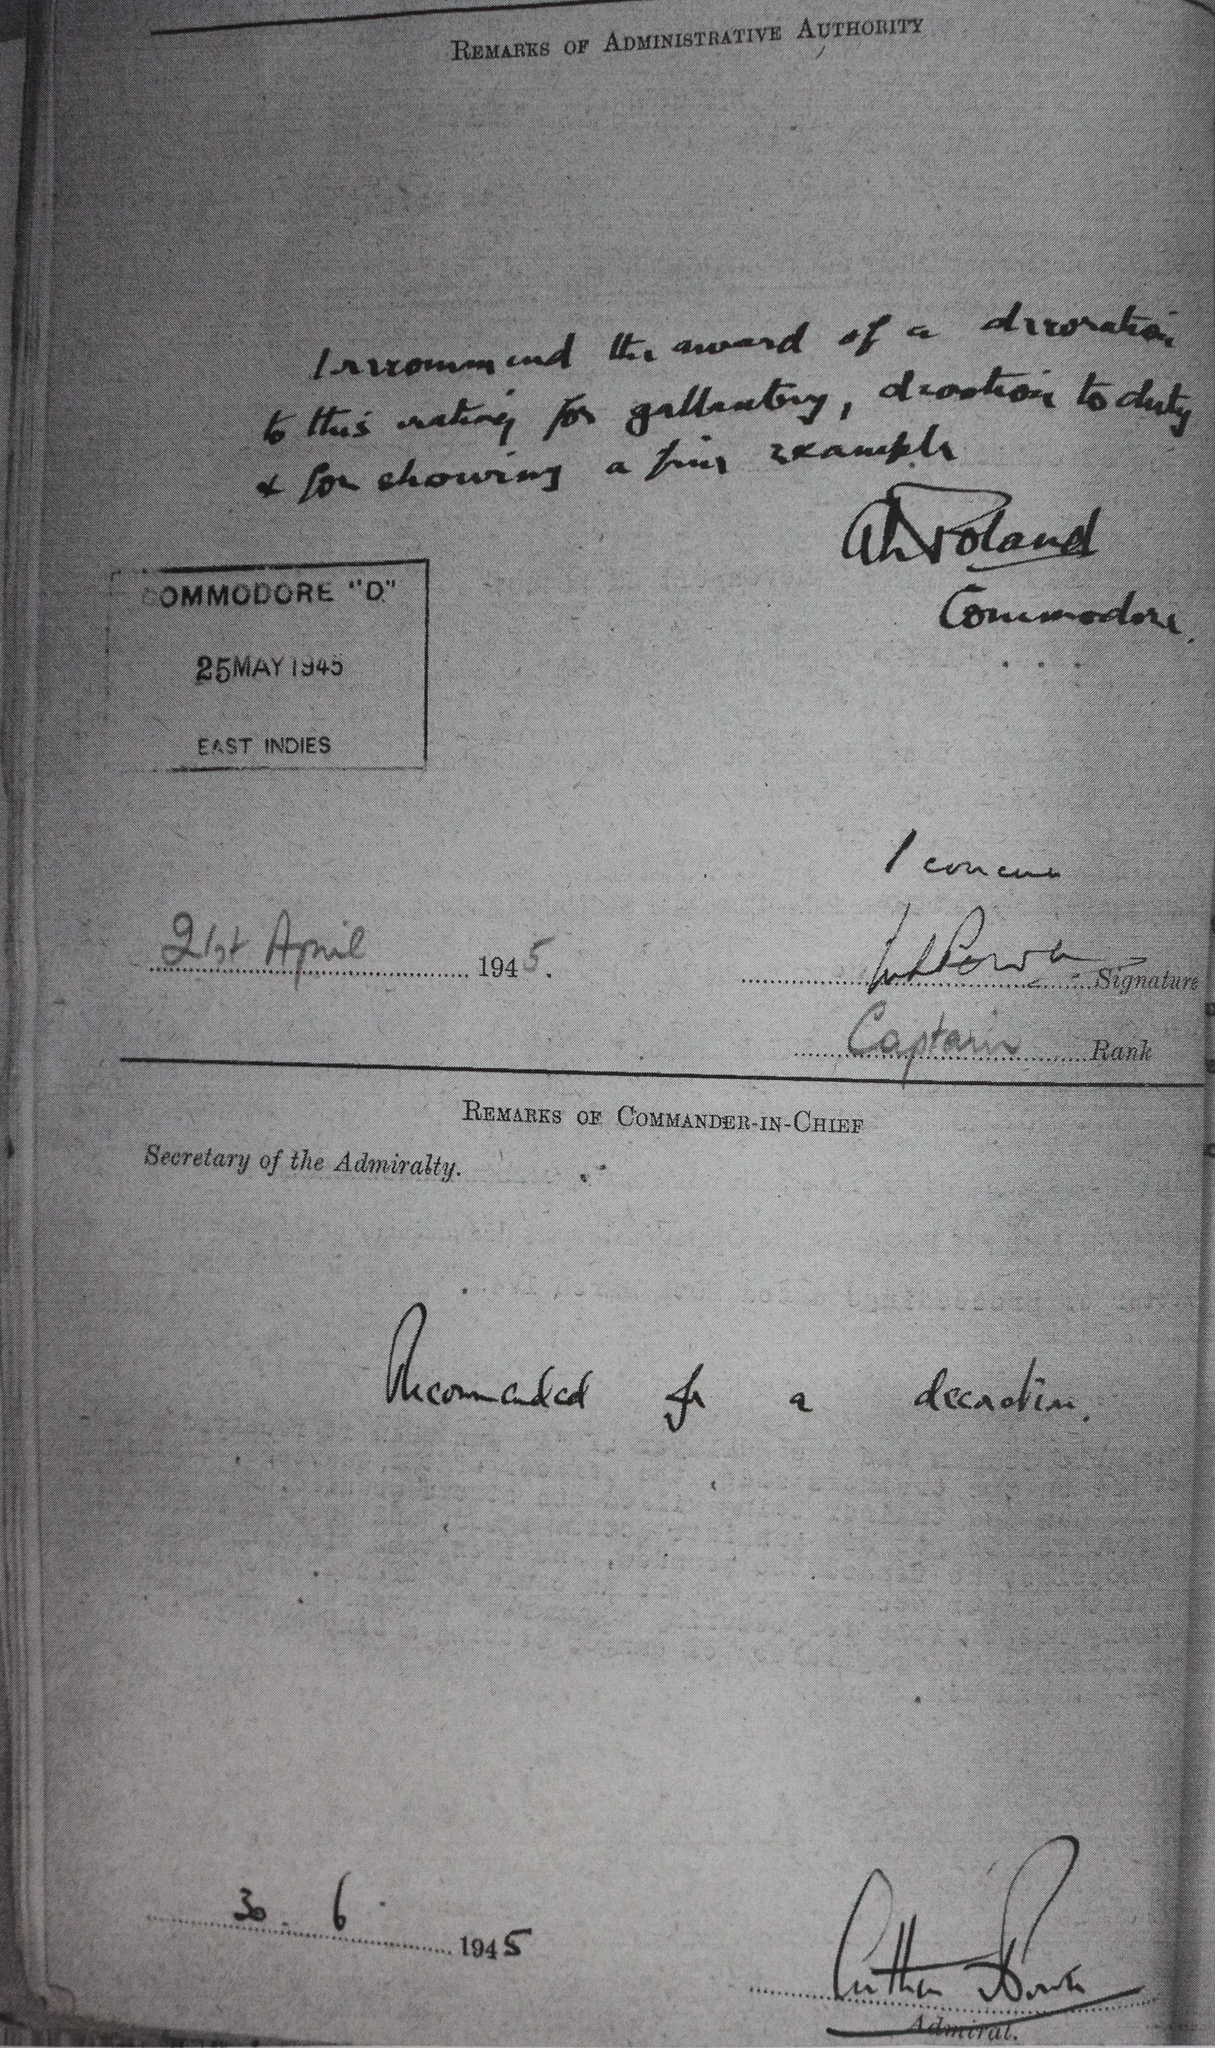 REMARKS OF ADMINISTRATIVE AUTHORITY
I recommend the award of a decoration
to this rating for gallantry, devotion to duty
& for showing a fine example
Poland
Commodore.
COMMODORE "D."
25 MAY 1945
EAST INDIES
I concur
21st April 1945.
Signature
Captain Rank
REMARKS OF COMMANDER-IN-CHIEF
Secretary of the Admiralty.
Recommended for a decoration.
30. 6. 1945
Arthur J Power
Admiral.